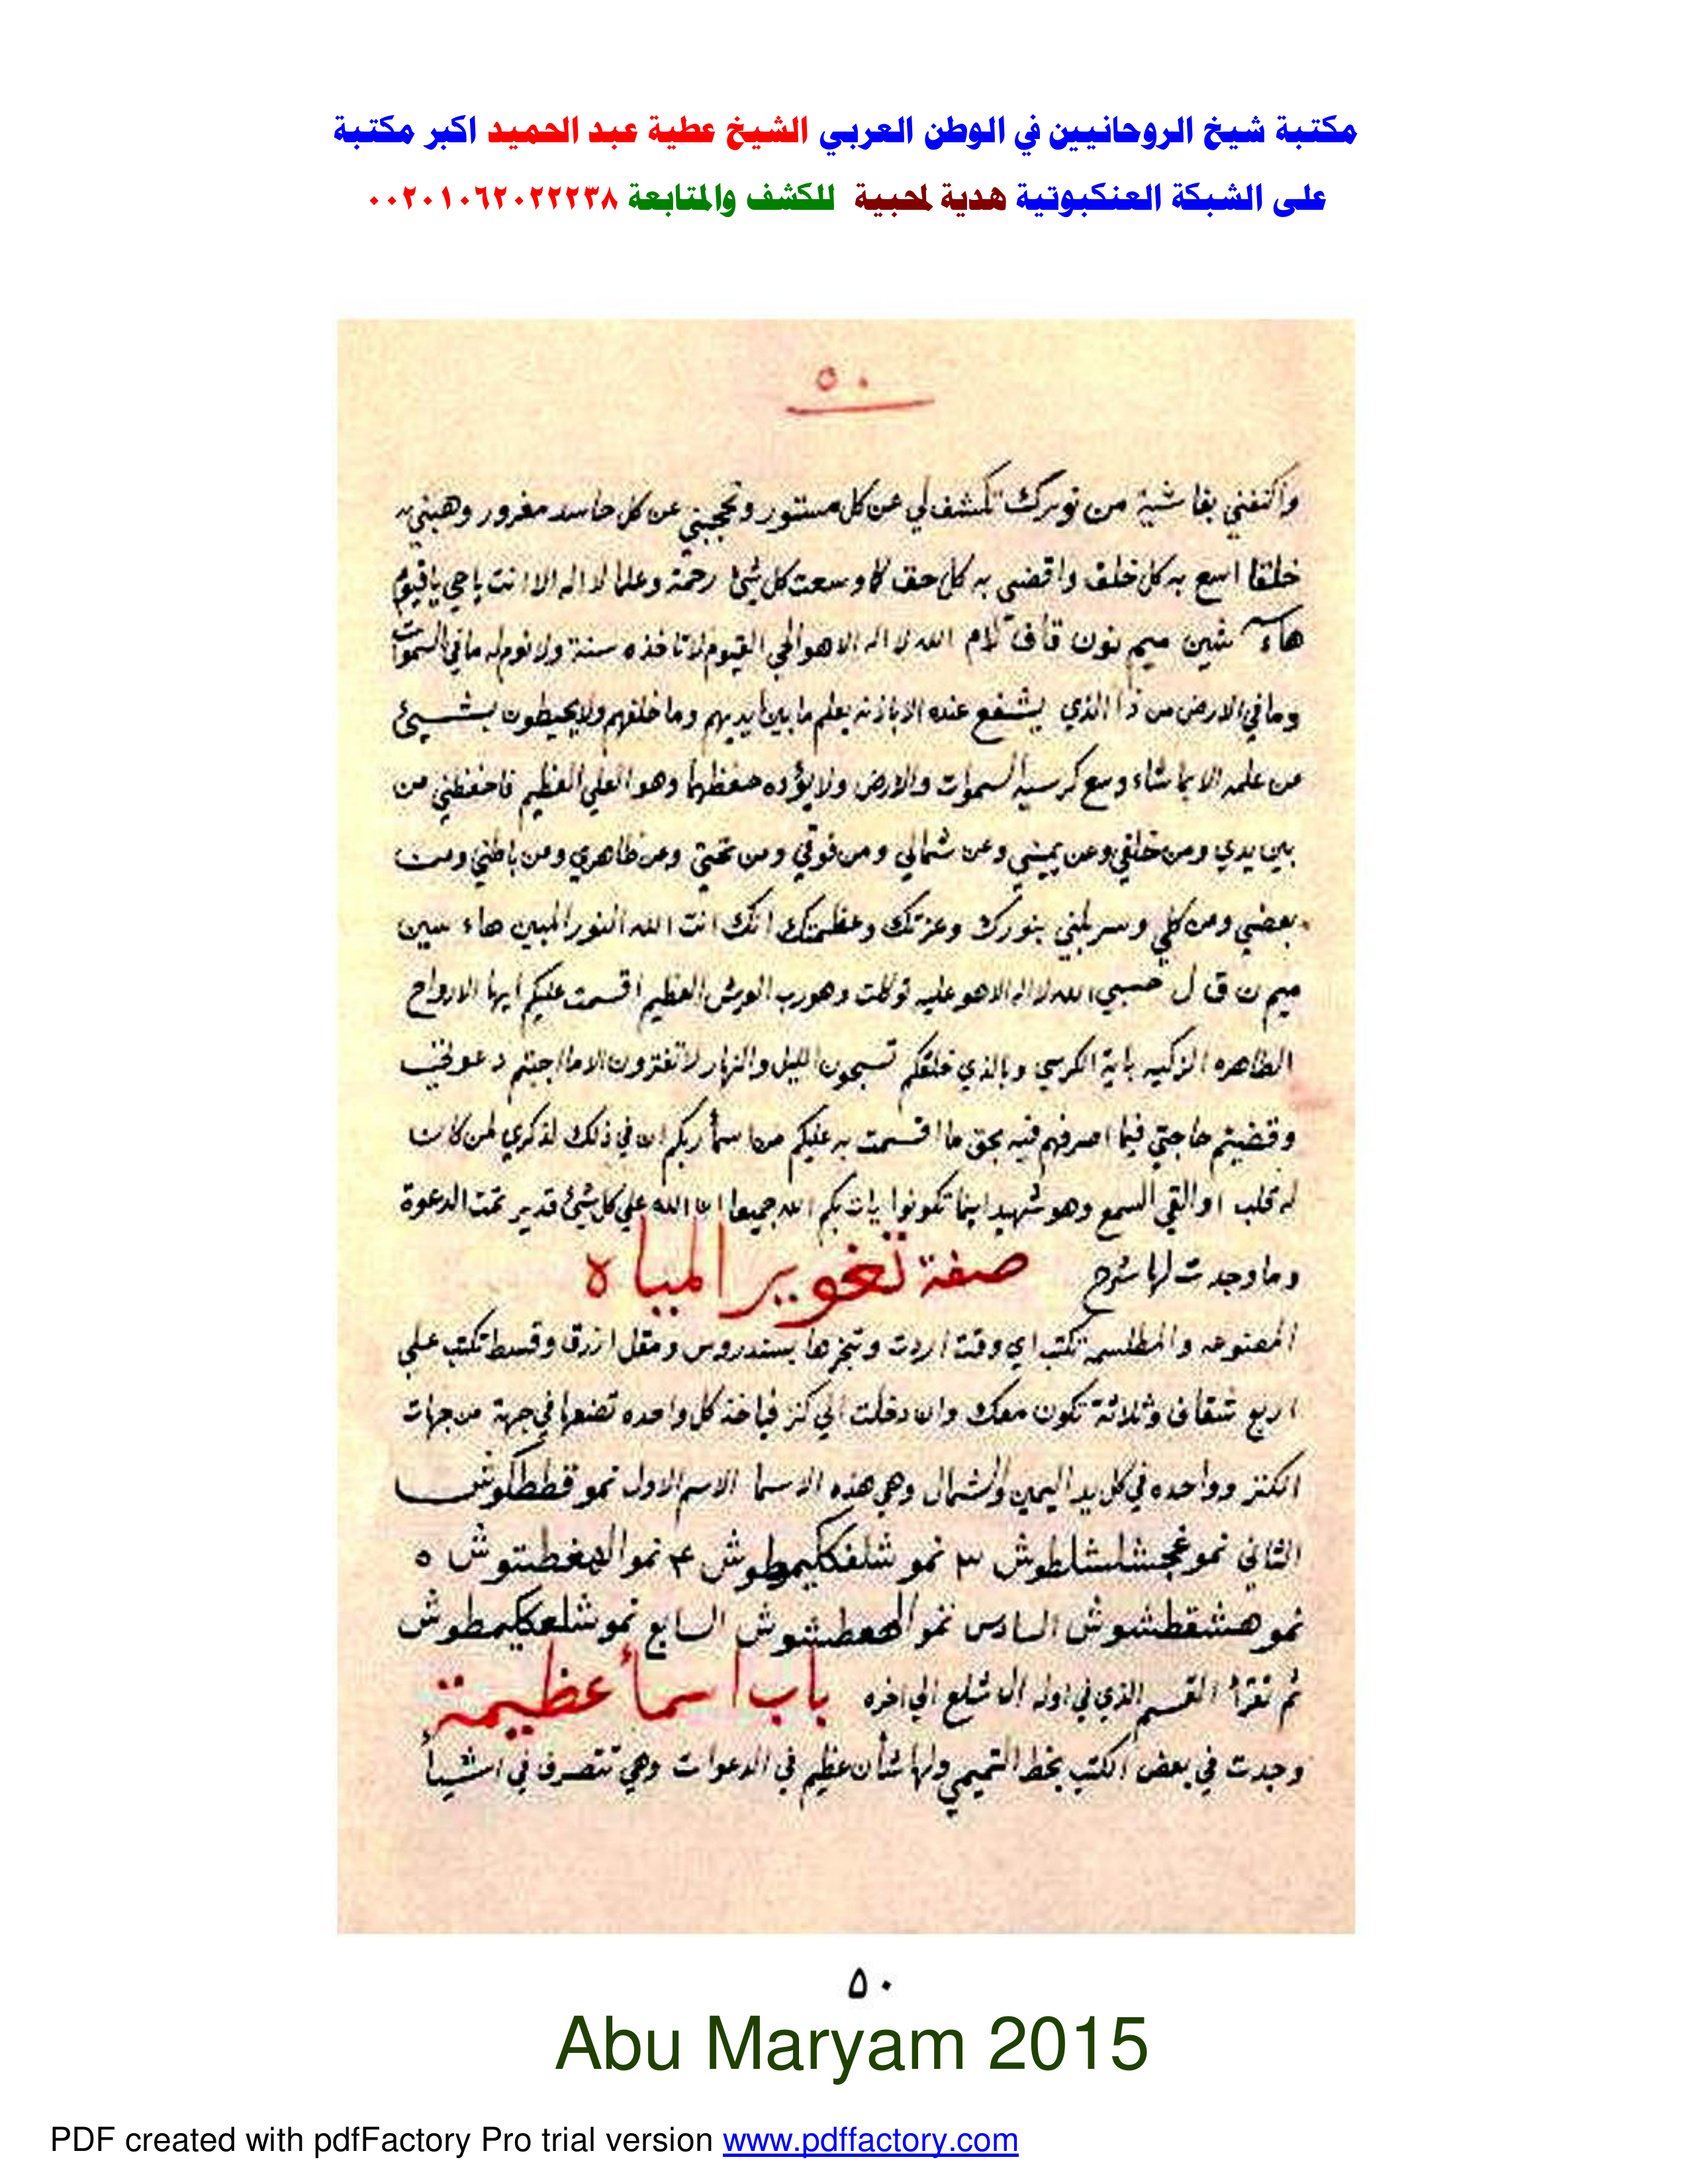 مكتبة شيخ الروحانيين في الوطن العربي الشيخ عطية عبد الحميد اكبر مكتبة
على الشبكة العنكبوتية هدية لمحبية للكشف والمتابعة ٠٠٢٠١٠٦٢٠٢٢٢٣٨
٥٠
واكنفني بغاشية من نورك تكشف لي عن كل مستور وتحجبني عن كل حاسد مغرور وهبني
خلقا اسع به كل خلق واقضي به كل حق كما وسعت كل شئ رحمة وعلما لا اله الا انت يا حي يا قيوم
هاء شين ميم نون قاف لام الله لا اله الا هو الحي القيوم لا تاخذه سنة ولا نوم له ما في السموات
وما في الارض من ذا الذي يشفع عنده الا باذنه يعلم ما بين ايديهم وما خلفهم ولا يحيطون بشيئ
من علمه الا بما شاء وسع كرسيه السموات والارض ولا يؤده حفظهما وهو العلي العظيم فاحفظني من
بين يدي ومن خلفي وعن يميني وعن شمالي ومن فوقي ومن تحتي ومن ظاهري ومن باطني ومن
بعضي ومن كلي وسربلني بنورك وعزتك وعظمتك انك انت الله النور المبين هاء سين
ميم ن ق ل حسبي الله لا اله الا هو عليه توكلت وهو رب العرش العظيم اقسمت عليكم ايها الارواح
الطاهره الزكيه باية الكرسي وبالذي خلقكم تسبحون الليل والنهار لا تفترون الا ما اجبتم دعوتي
وقضيتم حاجتي فيما اصرفهم فيه بحق ما اقسمت به عليكم من اسمأ ربكم ان في ذلك لذكري لمن كان
له قلب او القي السمع وهو شهيد اينما تكونوا يات بكم الله جميعا ان الله علي كل شئ قدير تمت الدعوة
وما وجدت لها شرح صفة تغوير المياه
المصنوعه والمطلسمه تكتب اي وقت اردت وتبخرها بسندروس ومقل ازرق وقسط تكتب علي
اربع شقاف وثلاثة تكون معك وان دخلت الي كنز فياخذ كل واحده تضعها في جهة من جهات
الكنز وواحده في كل يد اليمين والشمال وهي هذه الاسما الاسم الاول نموقططلوش
الثاني نموغجشلشلطوش ٣ نموشلفككليمطوش ۴ نموالهغطبتوش ٥
نموهشقطشوش السادس نموالهعطشوش السابع نموشلعكليمطوش
ثم تقرأ القسم الذي في اوله ال شلع الي اخره باب اسمأ عظيمة
وجدت في بعض الكتب بخط التميمي ولها شأن عظيم في الدعوات وهي تتصرف في اشيأ
٥٠
Abu Maryam 2015
PDF created with pdfFactory Pro trial version www.pdffactory.com